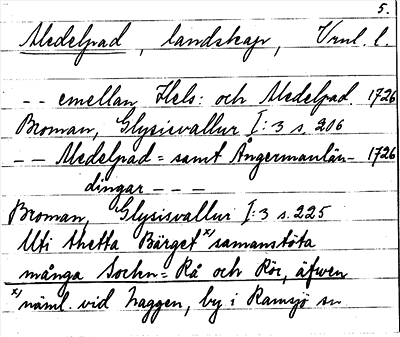 5.
Medelpad, landskap, Vrnl. l.
-- emellan Hels: och Medelpad. 1726
Broman, Glysisvallur I:3 s. 206
-- Medelpad= samt Ångermanlän- 1726
dingar ---
Broman, Glysisvallur I:3 s. 225
Uti thetta Bärget x/ samanstöta
många Sochn= Rå och Rör, äfwen
x/ näml. vid Haggen, by i Ramsjö sn